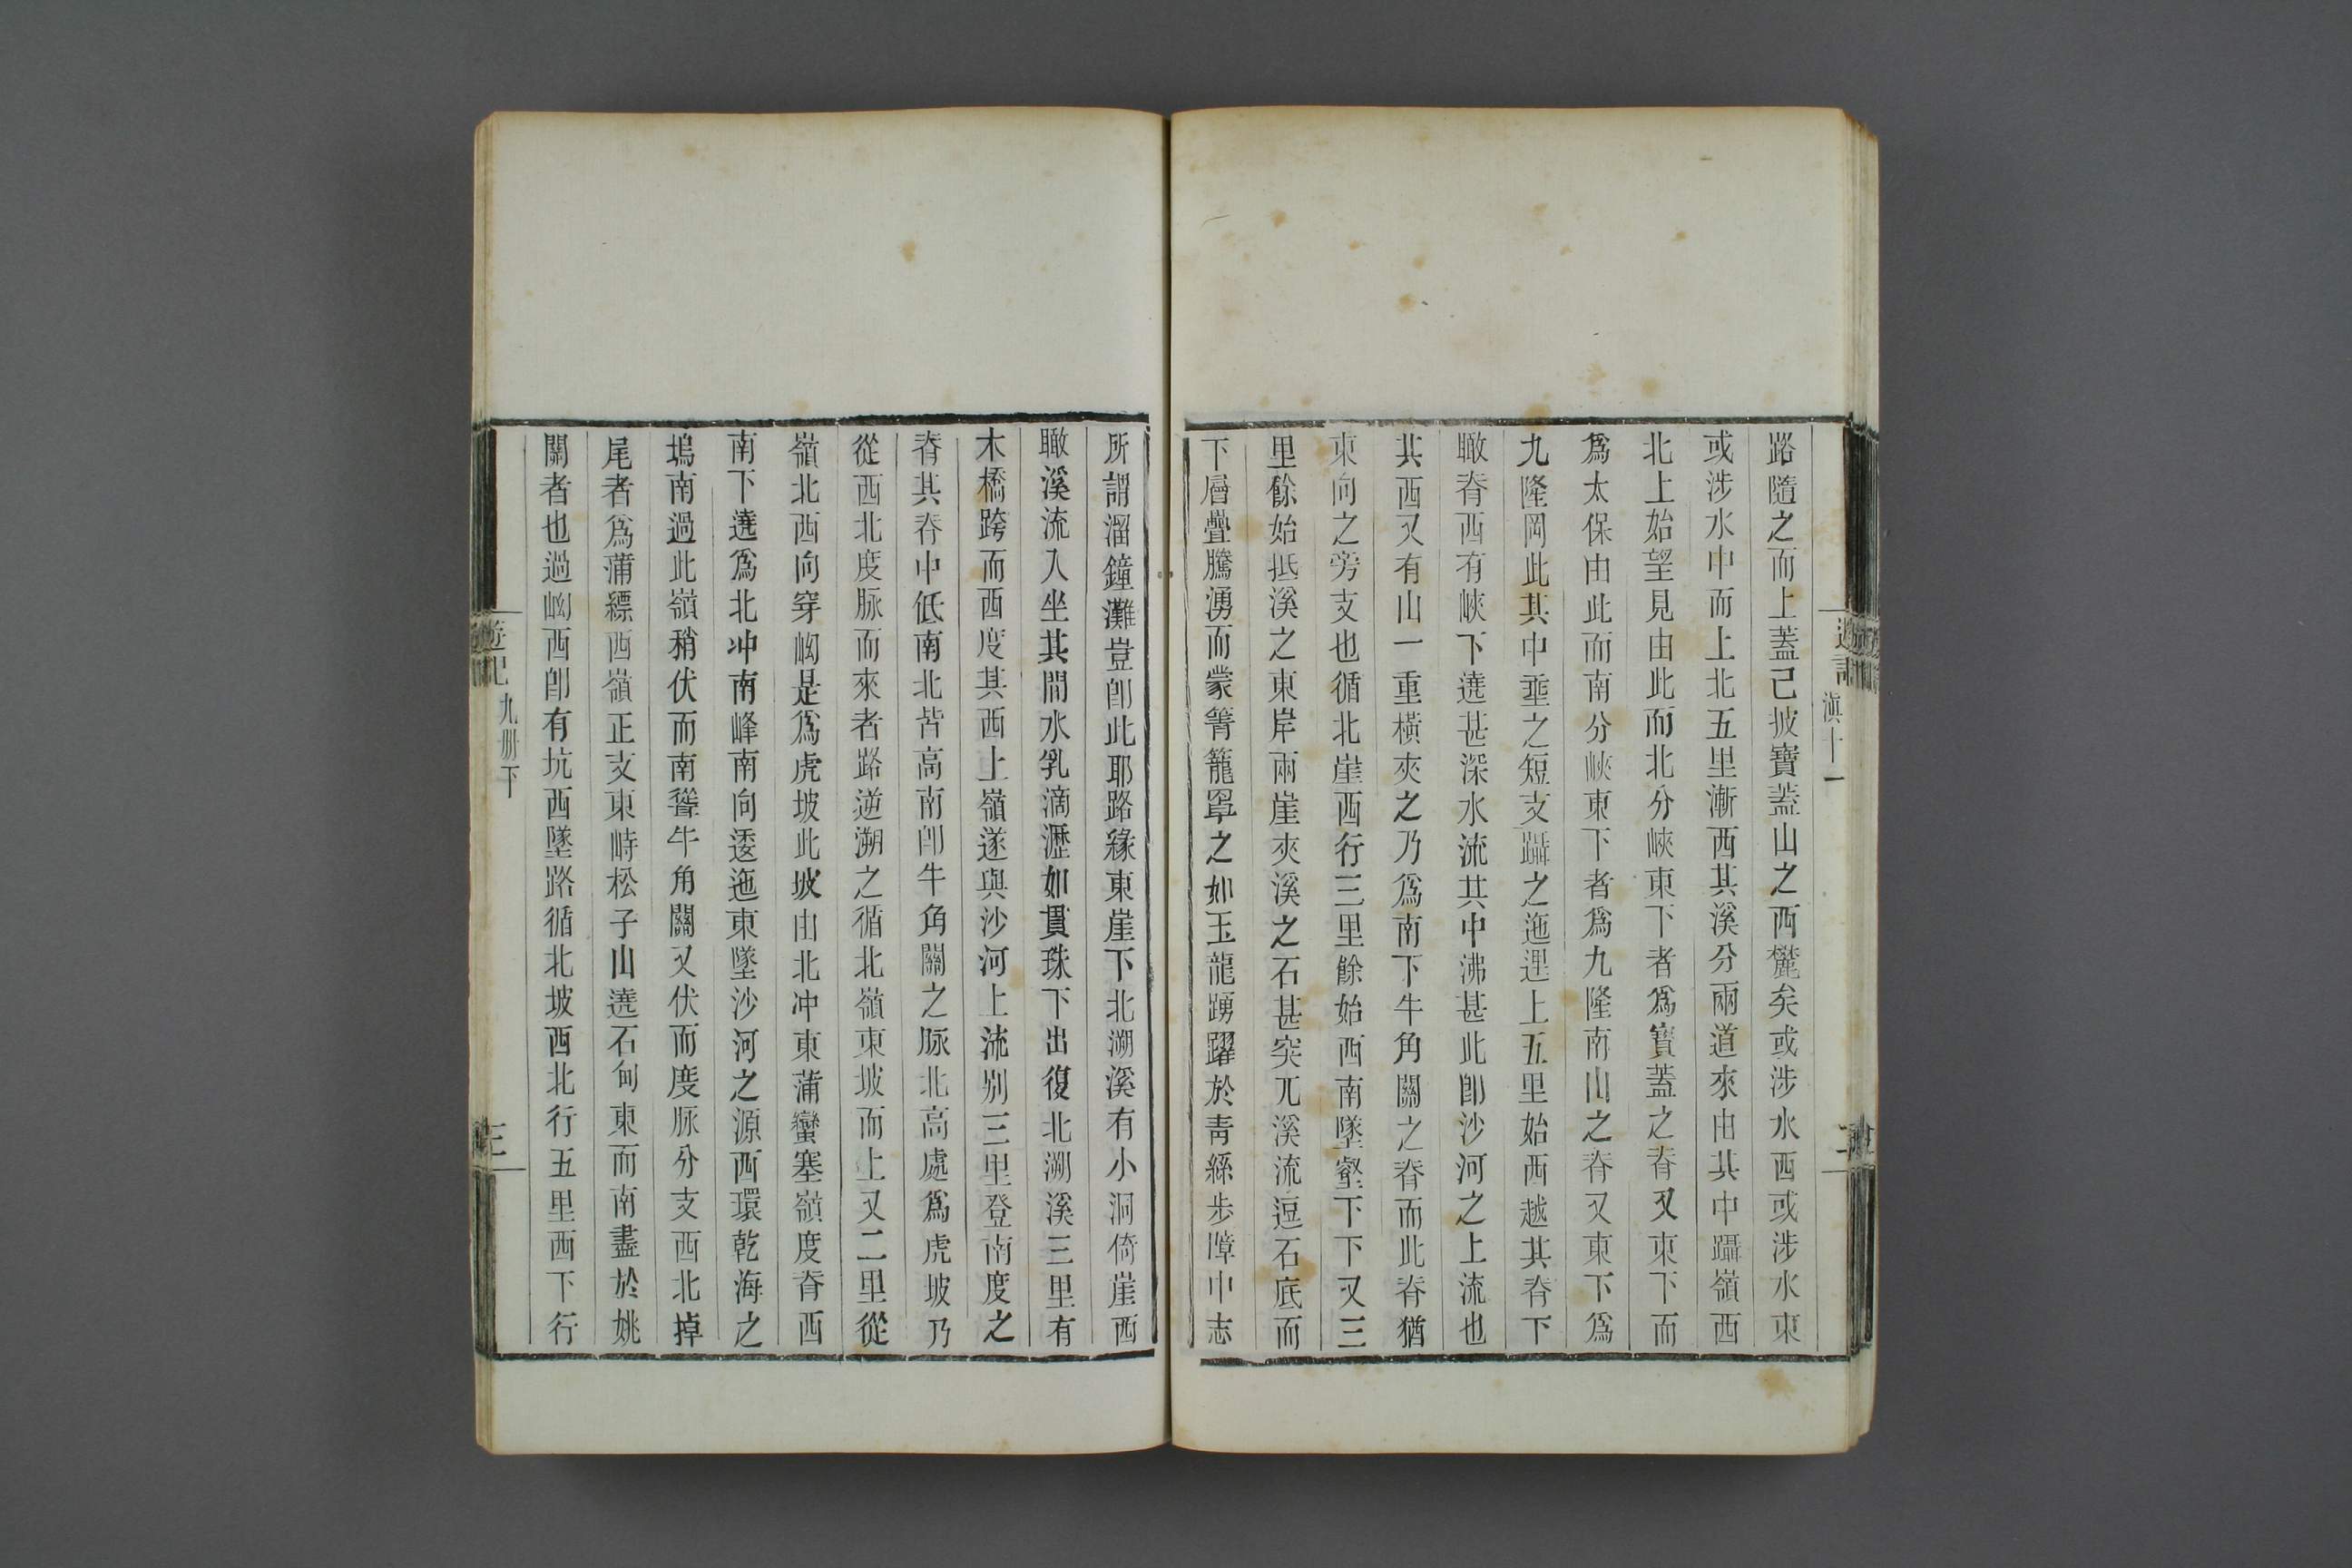 滇十一
路隨之而上蓋己披寶蓋山之西麓矣或涉水西或涉水東
或涉水中而上北五里漸西其溪分兩道來由其中躡嶺西
北上始望見由此而北分峽東下者爲寶蓋之脊又東下而
爲太保由此而南分峽東下者爲九隆南山之脊又東下爲
九隆岡此其中垂之短支躡之迤邐上五里始西越其脊下
瞰脊西有峽下遶甚深水流其中沸甚此卽沙河之上流也
其西又有山一重橫夾之乃爲南下牛角關之脊而此脊猶
東向之旁支也循北崖西行三里餘始西南墜壑下下又三
里餘始抵溪之東岸兩崖夾溪之石甚突兀溪流逗石底而
下層疊騰湧而蒙箐籠罩之如玉龍踴躍於靑絲步障中志
所謂溜鐘灘豈卽此耶路緣東崖下北溯溪有小洞倚崖西
瞰溪流入坐其間水乳滴瀝如貫珠下出復北溯溪三里有
木橋跨而西度其西上嶺遂與沙河上流別三里登南度之
脊其脊中低南北皆高南卽牛角關之脉北高處爲虎坡乃
從西北度脉而來者路逆溯之循北嶺東坡而上又二里從
嶺北西向穿坳是爲虎坡此坡由北冲東蒲蠻塞嶺度脊西
南下遶爲北冲南峰南向逶迤東墜沙河之源西環乾海之
塢南過此嶺稍伏而南聳牛角關又伏而度脉分支西北掉
尾者爲蒲縹西嶺正支東峙松子山遶石甸東而南盡於姚
關者也過坳西卽有坑西墜路循北坡西北行五里西下行
遊記
九册下
三